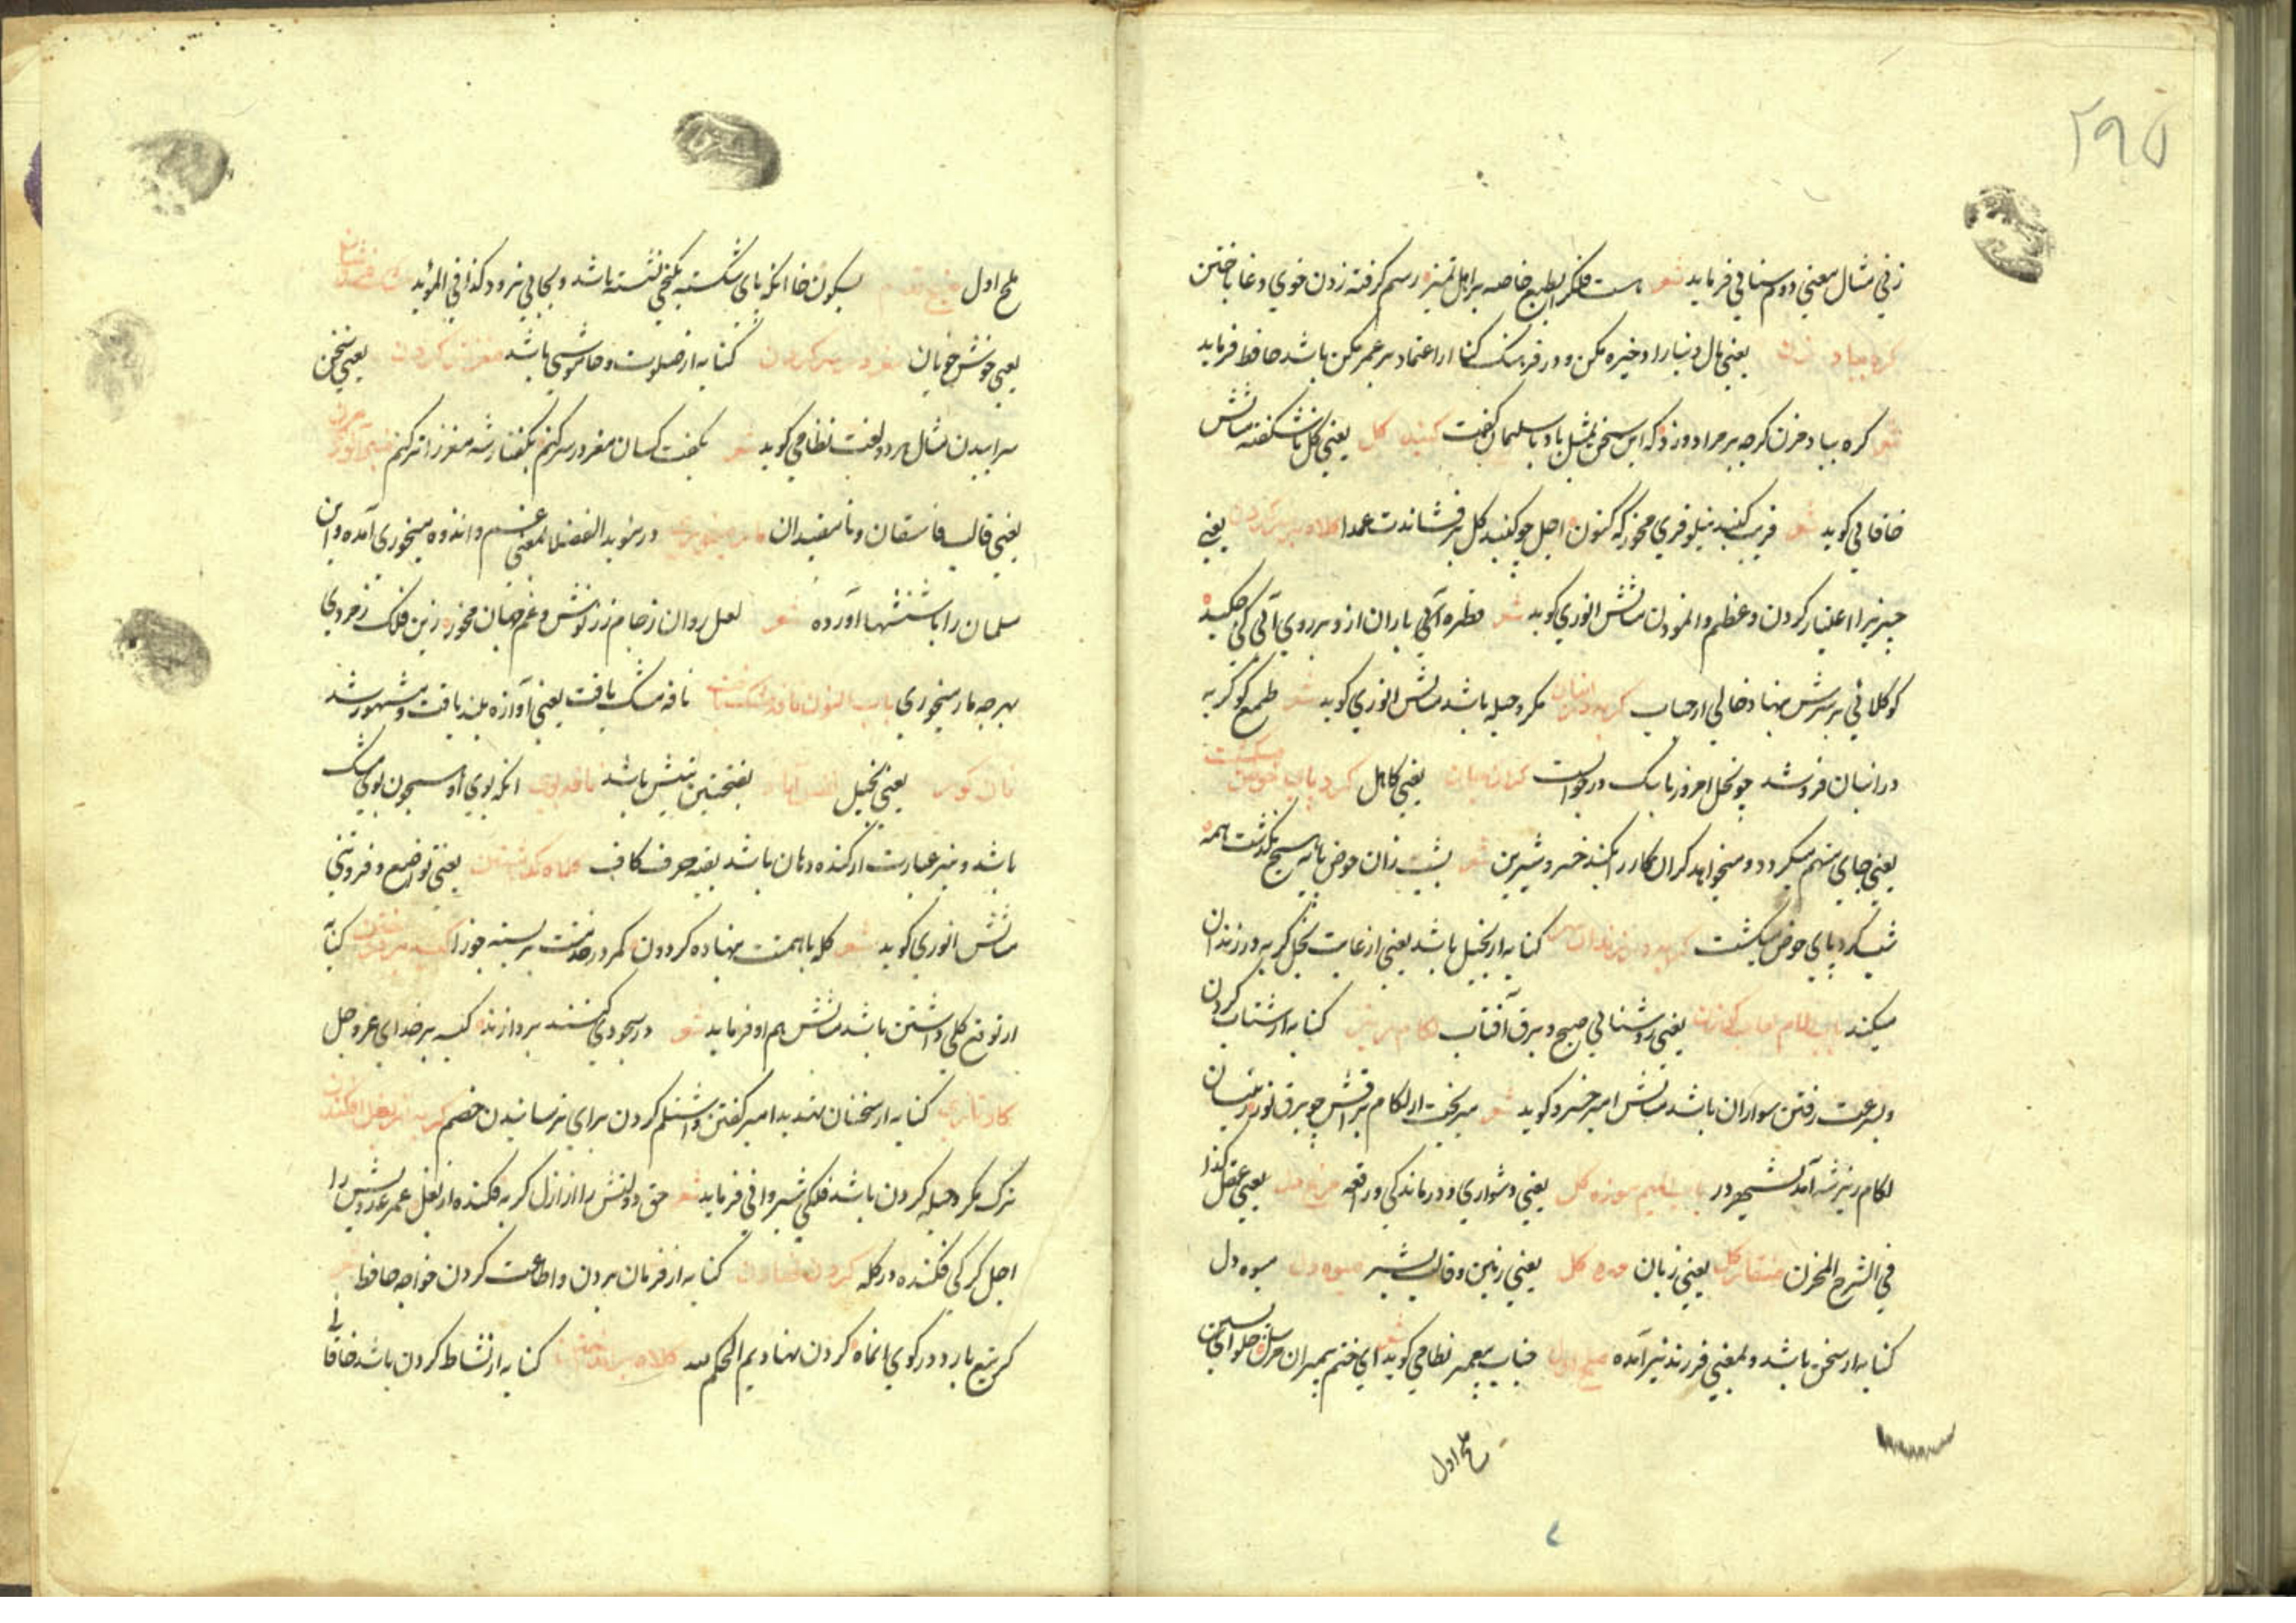 ۲۹۵
زنی مثال معنی دوم سنائی فرماید شعر هست فلک را بطبع خاصه بر اهل تمیز رسم گرفته زدن خوی دغا باختن
گره بباد مزن یعنی مال دنیا را ذخیره مکن و در فرهنگ کنا از اعتماد بر عمر مکن باشد حافظ فرماید
شعر گره بباد مزن گرچه بر مراد وزد که این سخن بمثل باد با سلیمان گفت گنبد گل یعنی گل ناشکفته مثالش
خاقانی گوید شعر فریب گنبد نیلوفری مخور که کنون اجل چو گنبد گل بر فشاندت عمدا یعنی
چیزیرا اعتبار کردن و عظم وانمودن مثالش انوری گوید شعر قطره آبی باران از و بر روی آبی کی چکید
کو کلاهی بر سرش ننهاد خالی از حباب گربه در انبان مکر و حیله باشد مثالش انوری گوید شعر طمع کو گربه
در انبان فروشد چو نخل امروز با سگ در جوالست یعنی کاهل گرد پای حوض گشت
یعنی جای متهم میگردد و میخواهد کران کار را بکند خسرو شیرین شعر بشب زان حوض پایه هیچ نگذشت همه
شب گرد پای حوض میگشت کنایه از بخیل باشد یعنی از غایت بخل گربه در زندان
میکند باب اللام یعنی روشنائی صبح و برق آفتاب لگام ریز کنایه از شتاب کردن
و بسرعت رفتن سواران باشد مثالش امیر خسرو گوید شعر میریخت از لگام براقش چو برق نور زینسان
لگام ریز شه آمد باب المیم موزه گل یعنی دشواری و درماندگی و راقعه یعنی عقل کذا
فی الشرح المخزن منقار گل یعنی زبان مهره گل یعنی زمین و قالب بشر میوه دل میوه دل
کنایه از سخن باشد و بمعنی فرزند نیز آمده ملح اول جناب پیغمبر نظامی گوید شعر ای ختم پیمبران مرسل حلوای پسین
ملح اول
ملح اول بسکون خا آنکه پای شکسته بکنجی نشسته باشد و بجائی نرود کذا فی المؤید
یعنی خوش خویان مغز در سر کردن کنایه از صلوت و خاموشی باشد مغز تر کردن یعنی سخن
سراییدن مثال هر دو لغت نظامی گوید شعر بگفت کسان مغز در سر کنم بگفتار شه مغز را تر کنم
یعنی قالب فاسقان و نامفیدان در موید الفضلا بمعنی غم و اندوه میخوری آمده و این
سلمان را باستشهاد آورده شعر لعل روان ز جام زر نوش و غم جهان مخور زین فلک زمردی
بهر چه مار میخوری باب النون نافه مشک یافت نافه مشک یافت یعنی آوازه بلند یافت و مشهور شد
نان کور یعنی بخیل بفتحتین بینش باشد آنکه بوی او همچون بوی مشک
باشد و نیز عبارت از گنده دهان باشد بقیه حرف کاف کلاه گذاشتن یعنی تواضع و فروتنی
مثالش انوری گوید شعر کله با همتت بنهاده گردون کمر در خدمتت بر بسته جوزا کنایه
از توقع کلی داشتن باشد مثالش هم او فرماید شعر در سجودی کنند بر دارند کیسه بر خدای عز و جل
کنایه از سخنان تهدید آمیز گفتن و اشتلم کردن برای ترسانیدن خصم گربه از بغل افکندن
ترک مکر و حیله کردن باشد فلکی شیروانی فرماید شعر حق دولتش را از ازل گربه فکنده از بغل عمر عدویش را
اجل گرگی فکنده در گله گردن نهادن کنایه از فرمان بردن و اطاعت کردن خواجه حافظ
گر تیغ بارد در کوی آنماه گردن نهادیم الحکم لله کنایه از نشاط کردن باشد خاقانی